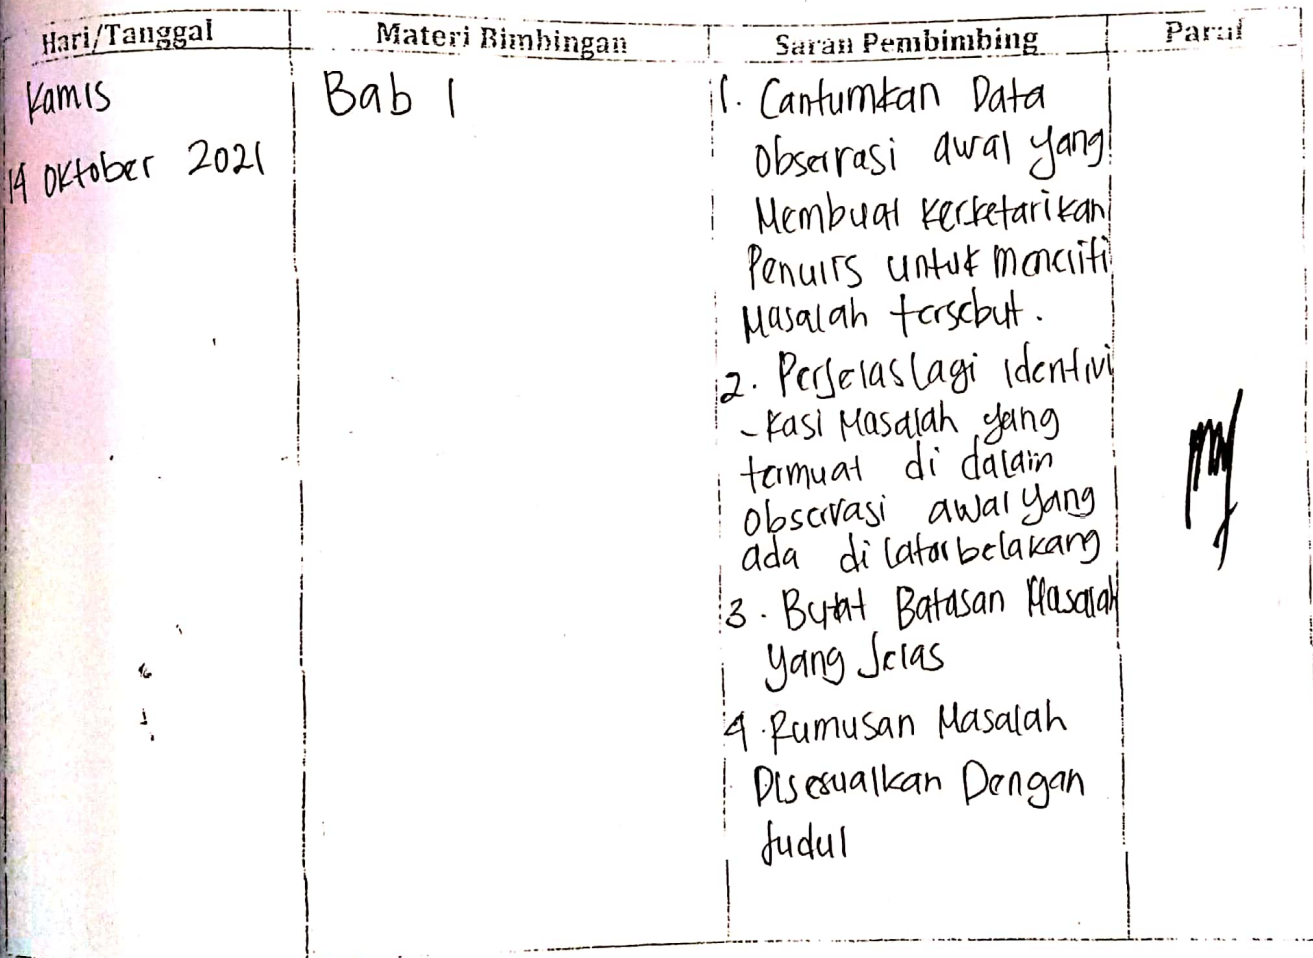 Hari/Tanggal Materi Bimbingan Saran Pembimbing Paraf
Kamis
14 Oktober 2021
Bab 1
1. Cantumkan Data
Observasi awal yang
Membuat kerketarikan
Penulis untuk meneliti
Masalah tersebut.
2. Perjelas lagi identivi
-kasi Masalah yang
termuat di dalam
observasi awal yang
ada di latar belakang
3. Buat Batasan Masalah
yang Jelas
4. Rumusan Masalah
Disesuaikan Dengan
Judul